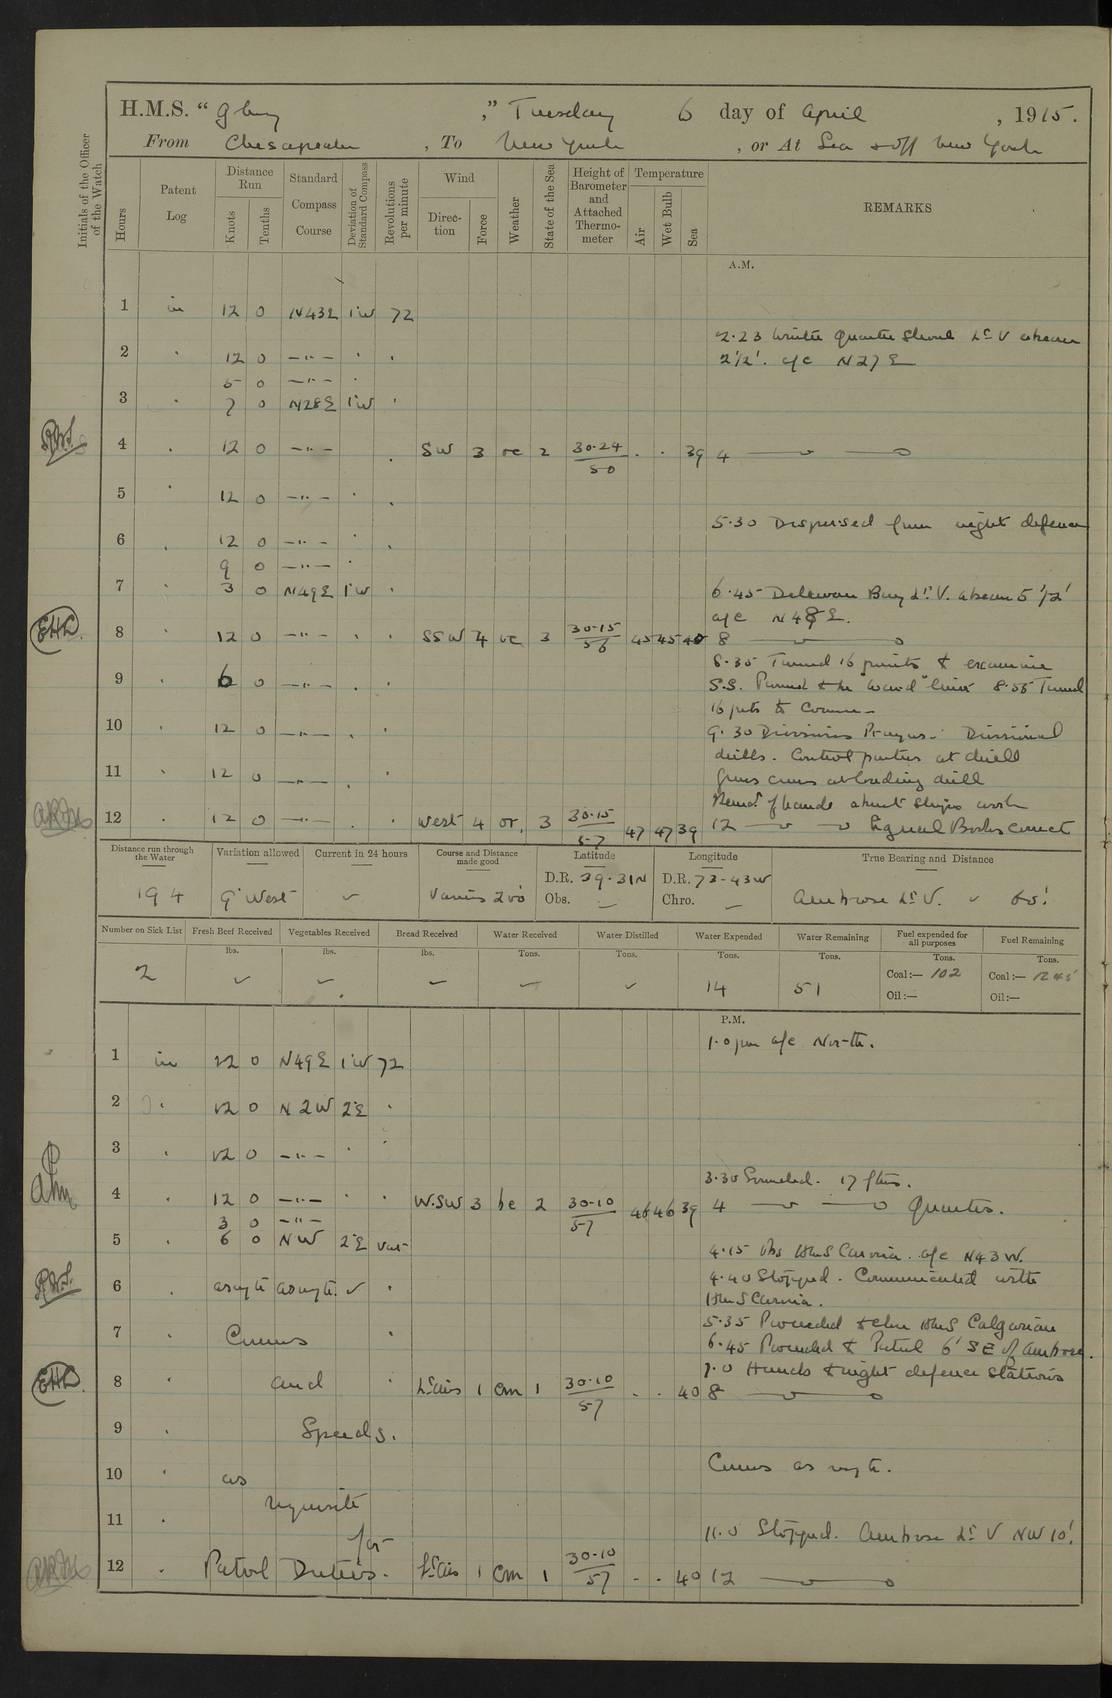 H.M.S. " Glory ," Tuesday 6 day of April , 1915.
From Chesapeake , To New York , or At Sea & off New York
Initials of the Officer of the Watch
Hours
Patent Log
Distance Run
Knots
Tenths
Standard Compass Course
Deviation of Standard Compass
Revolutions per minute
Wind
Direction
Force
Weather
State of the Sea
Height of Barometer and Attached Thermometer
Temperature
Air
Wet Bulb
Sea
REMARKS
A.M.
1 in 12 0 N43E 1°W 72
2.23 Winter Quarter Shoal Lt V abeam
2 " 12 0 —"— " " 2½'. a/c N27E
5 0 —"— "
3 " 7 0 N28E 1°W "
4 " 12 0 —"— " SW 3 oc 2 30.24 / 50 " " 39 4
5 " 12 0 —"— " "
5.30 Dispersed from night defence
6 " 12 0 —"— " "
9 0 —"— "
7 " 3 0 N49E 1°W " 6.45 Delaware Buoy Lt. V. abeam 5½'
a/c N48E.
EHL 8 " 12 0 —"— " " SSW 4 oc 3 30.15 / 56 45 45 40 8
8.35 Turned 16 points & examine
9 " 6 0 —"— " " S.S. 8.55 Turned
16 pts to Course
10 " 12 0 —"— " " 9.30 Divisions Prayers. Divisional
drills. Control parties at drill
11 " 12 0 —"— " " Guns crews at loading drill
Remdr of hands about Ships work
12 " 12 0 —"— " " West 4 or. 3 30.15 / 57 47 47 39 12 Signal Books correct
Distance run through the Water
194
Variation allowed
9° West
Current in 24 hours
✓
Course and Distance made good
Various 200
Latitude
D.R. 39.31N
Obs. —
Longitude
D.R. 73-43W
Chro. —
True Bearing and Distance
Ambrose Lt V. ✓ 65'
Number on Sick List
2
Fresh Beef Received
lbs.
✓
Vegetables Received
lbs.
✓
Bread Received
lbs.
✓
Water Received
Tons.
✓
Water Distilled
Tons.
✓
Water Expended
Tons.
14
Water Remaining
Tons.
51
Fuel expended for all purposes
Tons.
Coal:— 102
Oil:—
Fuel Remaining
Tons.
Coal:—
Oil:—
P.M.
1.0 pm a/c North.
1 in 12 0 N49E 1°W 72
2 " 12 0 N2W 2°E "
3 " 12 0 —"— " "
3.30 Sounded. 17 fms.
4 " 12 0 —"— " " W.SW 3 bc 2 30.10 / 57 46 46 39 4 Quarters.
3 0 —"—
5 " 6 0 NW 2°E var
4.15 Obs HMS Caronia. a/c N43W.
6 " as reqte as reqte. ✓ " 4.40 Stopped. Communicated with
HMS Caronia.
5.35 Proceeded & close HMS Calgarian
7 " Courses " 6.45 Proceeded & Patrol 6' SE of Ambrose.
7.0 Hands to night defence stations
EHL 8 " and " Lt airs 1 om 1 30.10 / 57 " " 40 8
9 " Speeds.
10 " as Courses as reqte.
requisite
11 " for 11.0 Stopped. Ambrose Lt V NW 10'.
12 " Patrol Duties. Lt airs 1 om 1 30.10 / 57 " " 40 12